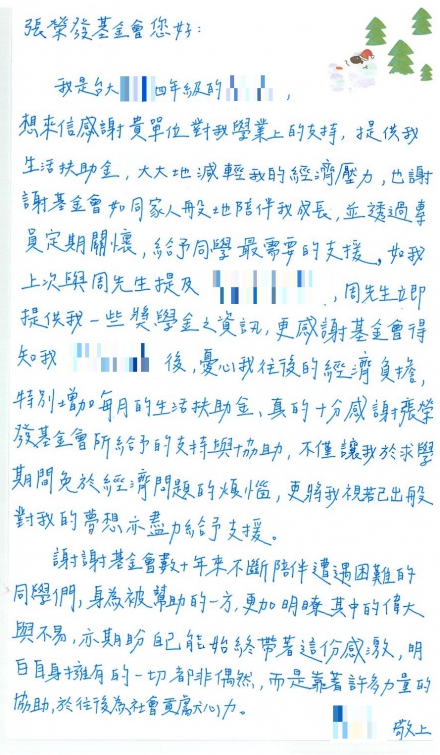 張榮發基金會您好：
我是台大 四年級的 ，
想來信感謝貴單位對我學業上的支持，提供我
生活扶助金，大大地減輕我的經濟壓力，也謝
謝基金會如同家人般地陪伴我成長，並透過專
員定期關懷，給予同學最需要的支援。如我
上次與周先生提及 ，周先生立即
提供我一些獎學金之資訊，更感謝基金會得
知我 後，憂心我往後的經濟負擔，
特別增加每月的生活扶助金、真的十分感謝張榮
發基金會所給予的支持與協助，不僅讓我於求學
期間免於經濟問題的煩惱，更將我視若己出般
對我的夢想亦盡力給予支援。
謝謝基金會數十年來不斷陪伴遭遇困難的
同學們，身為被幫助的一方，更加明瞭其中的偉大
與不易，亦期盼自己能始終帶著這份感激，明
白自身擁有的一切都非偶然，而是靠著許多力量的
協助，於往後為社會貢獻心力。
敬上